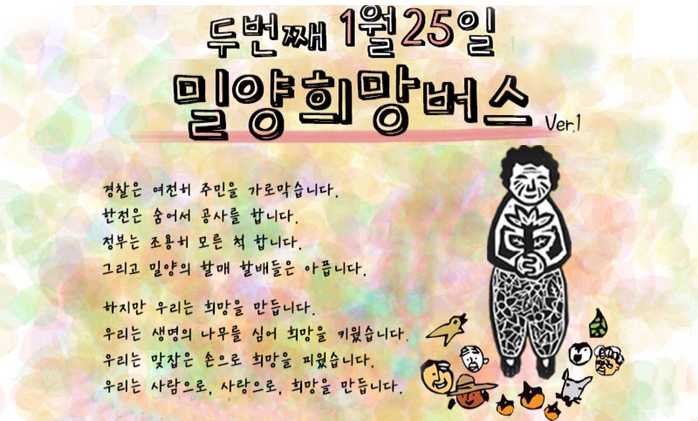 두번째 1월25일
밀양희망버스 Ver.1
경찰은 여전히 주민을 가로막습니다.
한전은 숨어서 공사를 합니다.
정부는 조용히 모른 척 합니다.
그리고 밀양의 할매 할배들은 아픕니다.
하지만 우리는 희망을 만듭니다.
우리는 생명의 나무를 심어 희망을 키웠습니다.
우리는 맞잡은 손으로 희망을 피웠습니다.
우리는 사람으로, 사랑으로, 희망을 만듭니다.